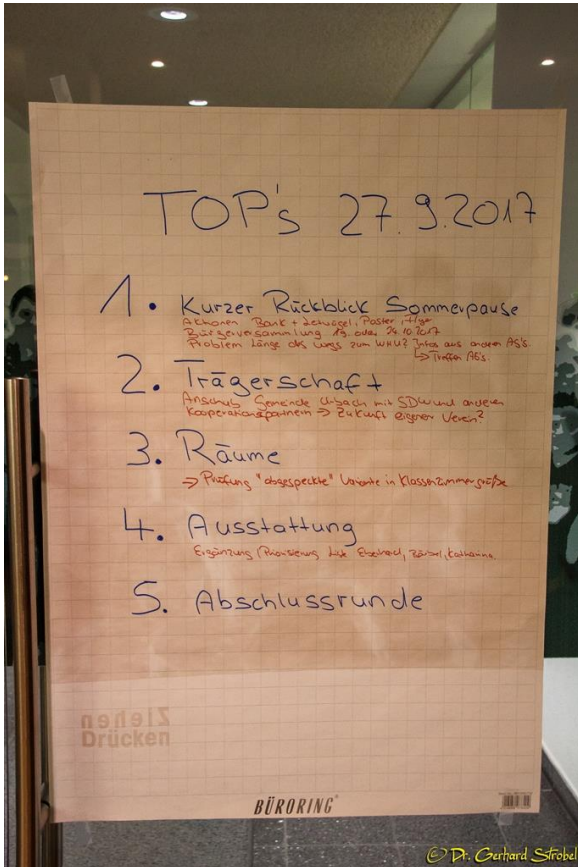 TOP's 27.9.2017
1. Kurzer Rückblick Sommerpause
Aktionen Bank + , Poster,
Bürgerversammlung 19. oder 24.10.2017
Problem Länge des Wegs zum ? Infos aus anderen AG's.
↳ Treffen AG's.
2. Trägerschaft
Anschub Gemeinde mit SDW und anderen
Kooperationspartnern → Zukunft eigener Verein?
3. Räume
→ Prüfung "abgespeckte" Variante in Klassenzimmergröße
4. Ausstattung
Ergänzung / Priorisierung Eberhard, Bärbel, Katharina.
5. Abschlussrunde
Ziehen
Drücken
BÜRORING
© Dr. Gerhard Strobel